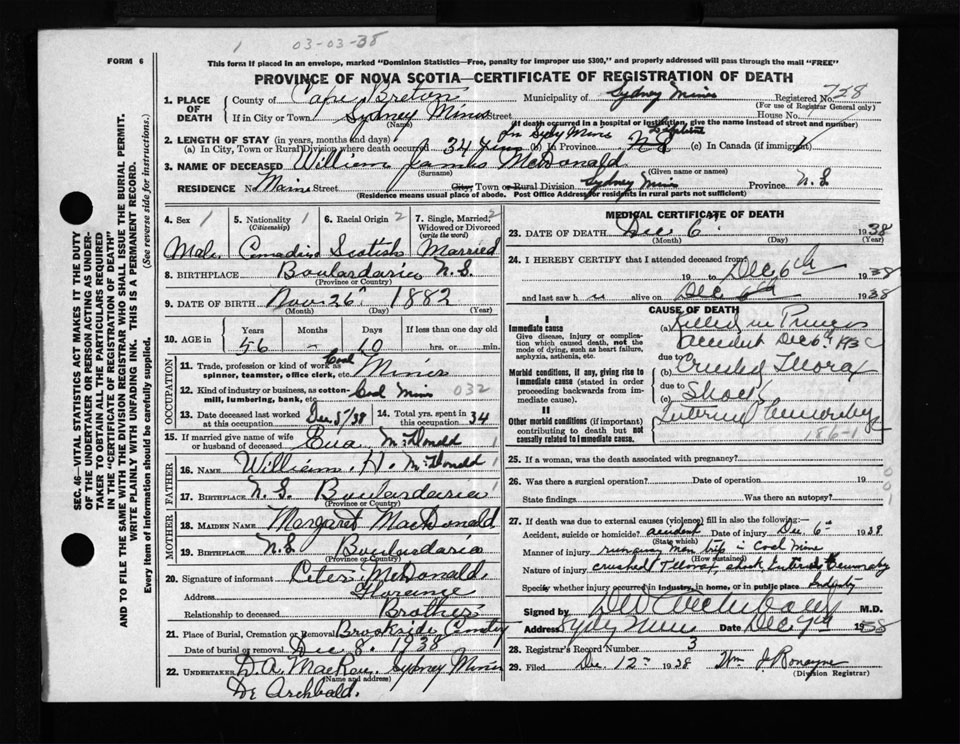 1 03-03-38
FORM 6
This form if placed in an envelope, marked "Dominion Statistics—Free, penalty for improper use $300," and properly addressed will pass through the mail "FREE"
PROVINCE OF NOVA SCOTIA—CERTIFICATE OF REGISTRATION OF DEATH
SEC. 46—VITAL STATISTICS ACT MAKES IT THE DUTY
OF THE UNDERTAKER OR PERSON ACTING AS UNDER-
TAKER TO OBTAIN ALL THE PARTICULARS REQUIRED
IN THE "CERTIFICATE OF REGISTRATION OF DEATH"
AND TO FILE THE SAME WITH THE DIVISION REGISTRAR WHO SHALL ISSUE THE BURIAL PERMIT.
WRITE PLAINLY WITH UNFADING INK. THIS IS A PERMANENT RECORD.
Every item of information should be carefully supplied. (See reverse side for instructions.)
1. PLACE OF DEATH County of Cape Breton Municipality of Sydney Mines Registered No. 728
(For use of Registrar General only)
If in City or Town Sydney Mines Street House No.
(Name) (If death occurred in a hospital or Institution, give the name instead of street and number)
2. LENGTH OF STAY (in years, months and days) In Sydy Mines
(a) In City, Town or Rural Division where death occurred 34 yrs (b) In Province N S (c) In Canada (if immigrant)
3. NAME OF DECEASED William James McDonald
(Surname) (Given name or names)
RESIDENCE No. Main Street City, Town or Rural Division Sydney Mines Province N. S
(Residence means usual place of abode. Post Office Address for residents in rural parts not sufficient)
4. Sex 1 5. Nationality 1 (Citizenship) 6. Racial Origin 2 7. Single, Married, Widowed or Divorced (write the word) 2
Male Canadian Scotish Married
8. BIRTHPLACE Boulardarie N. S.
(Province or Country)
9. DATE OF BIRTH Nov. 26 1882
(Month) (Day) (Year)
10. AGE in Years Months Days If less than one day old
56 — 10 hrs. or min.
OCCUPATION
11. Trade, profession or kind of work as spinner, teamster, office clerk, etc. Coal Miner
12. Kind of industry or business, as cotton-mill, lumbering, bank, etc. Coal Mines 032
13. Date deceased last worked at this occupation Dec 5/38 14. Total yrs. spent in this occupation 34
15. If married give name of wife or husband of deceased Eva McDonald 1
FATHER
16. NAME William H. McDonald 1
17. BIRTHPLACE N. S. Boulardarie
(Province or Country)
MOTHER
18. MAIDEN NAME Margaret MacDonald
19. BIRTHPLACE N. S Boulardarie
(Province or Country)
20. Signature of informant Peter McDonald
Address Florence
Relationship to deceased Brother
21. Place of Burial, Cremation or Removal Brookside Cemetry
Date of burial or removal Dec 8, 1938
22. UNDERTAKER D. A. MacRae Sydney Mines
(Name and address)
Dr Archbald.
MEDICAL CERTIFICATE OF DEATH
23. DATE OF DEATH Dec 6 1938
(Month) (Day) (Year)
24. I HEREBY CERTIFY that I attended deceased from:
19 to Dec 6th 1938
and last saw h alive on Dec 6th 1938
CAUSE OF DEATH
I
Immediate cause
Give disease, injury or complication which caused death, not the mode of dying, such as heart failure, asphyxia, asthenia, etc.
(a) Killed in Princess
accident Dec 6th 193
due to
Morbid conditions, if any, giving rise to immediate cause (stated in order proceeding backwards from immediate cause).
(b) Crushed Thorax
due to Shock
(c) Internal Hemorhage
II
Other morbid conditions (if important) contributing to death but not causally related to immediate cause.
186-1
25. If a woman, was the death associated with pregnancy?
26. Was there a surgical operation? Date of operation 19
State findings Was there an autopsy?
27. If death was due to external causes (violence) fill in also the following:—
Accident, suicide or homicide? accident Date of injury Dec. 6th 1938
(State which)
Manner of injury runaway man trip in Coal Mine
(How sustained)
Nature of injury crushed Thorax, shock Internal Hemorrhage
Specify whether injury occurred in Industry, in home, or in public place Industry
Signed by M.D.
Address Sydney Mines Date Dec 7th 1938
28. Registrar's Record Number 3
29. Filed Dec 12th 1938 Wm J Ronayne
(Division Registrar)